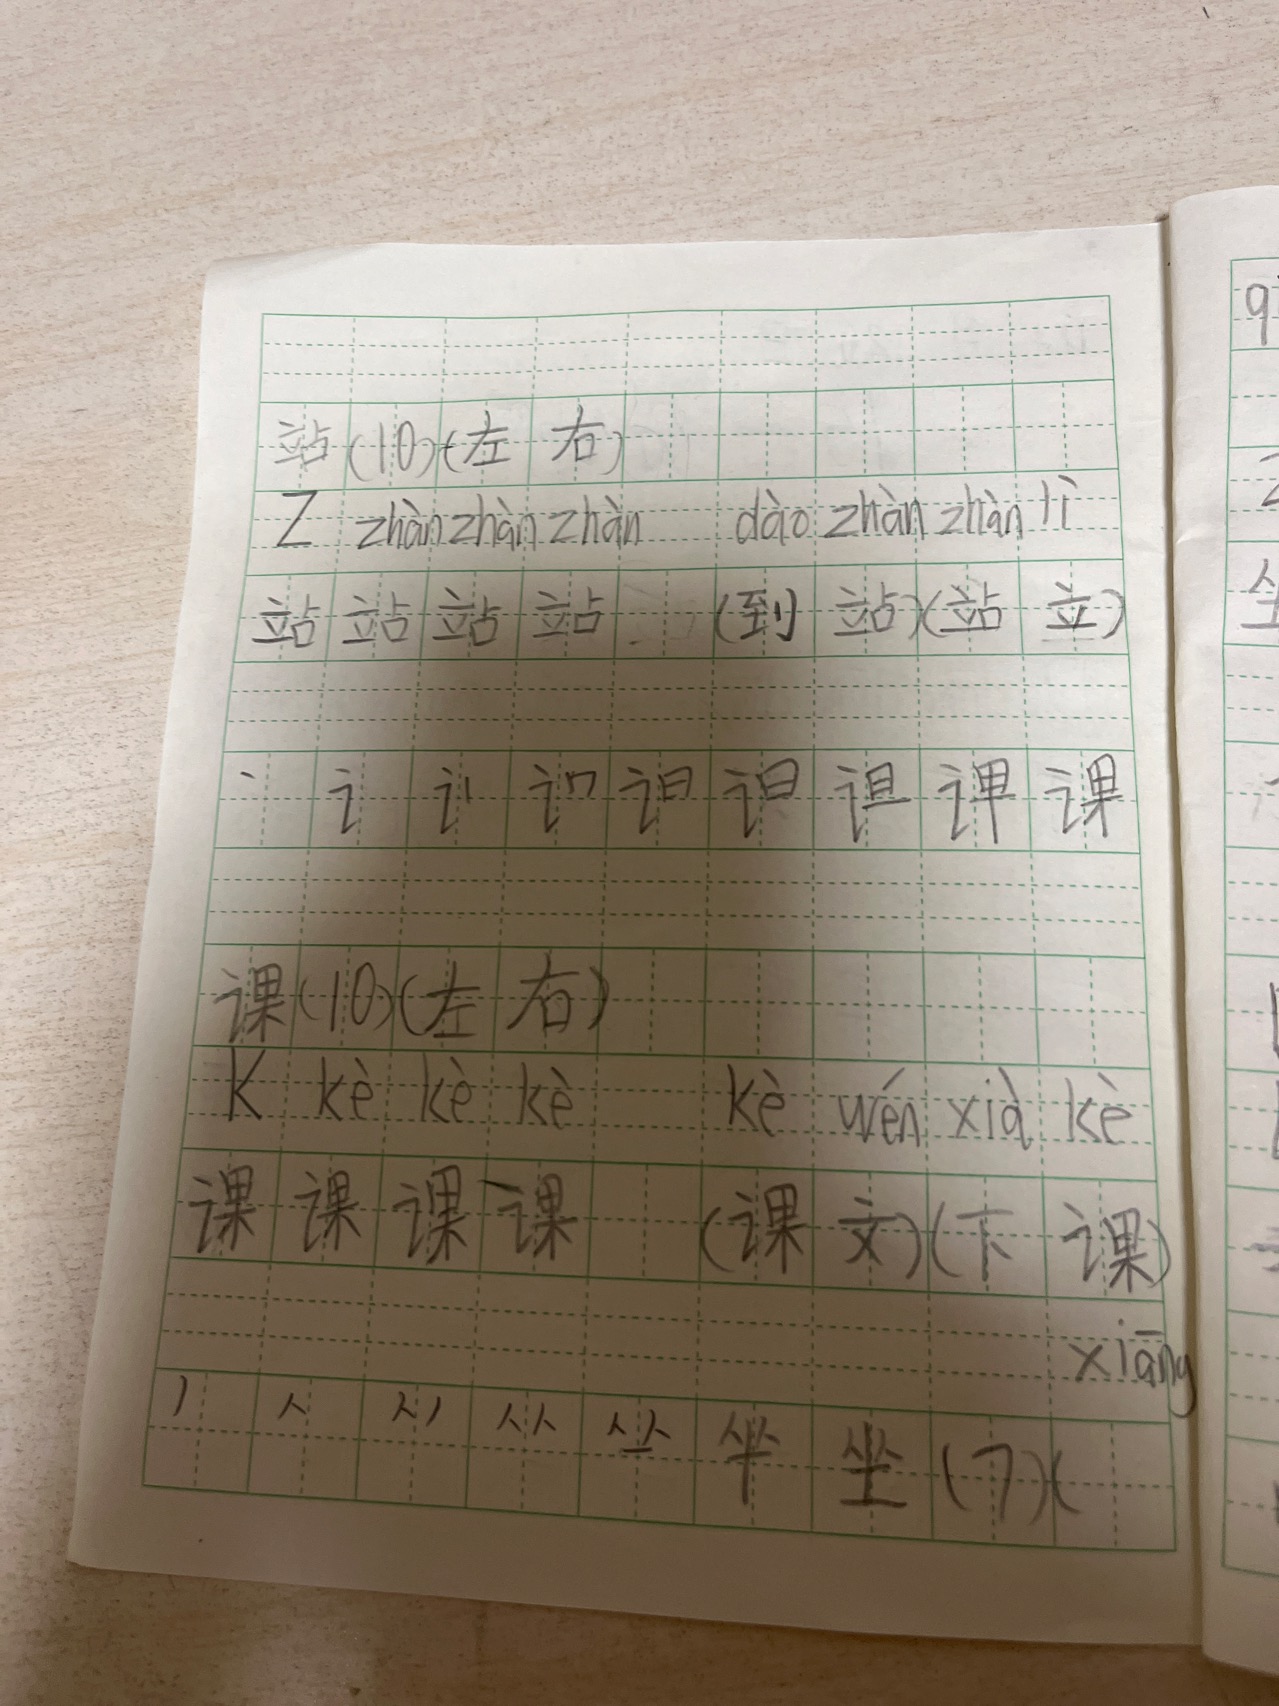 站(10)(左右)
Z zhàn zhàn zhàn dào zhàn zhàn lì
站站站站 (到站)(站立)
课
课(10)(左右)
K kè kè kè kè wén xià kè
课课课课 (课文)(下课)
xiāng
坐(7)(